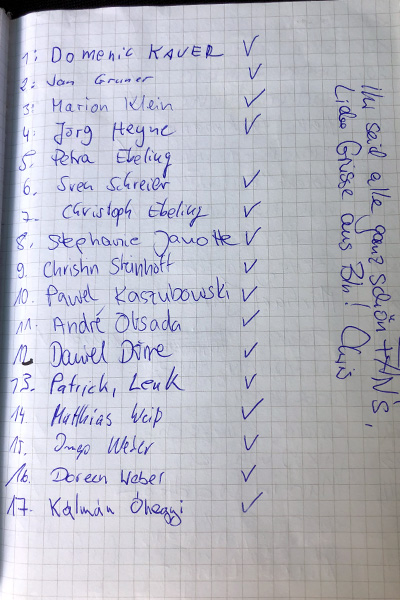 1: Domenic KAUER ✓
2: Jan Gruner ✓
3: Marion Klein ✓
4. Jörg Heyne ✓
5. Petra Ebeling
6. Sven Schreier ✓
7. Christoph Ebeling ✓
8. Stephanie Janotte ✓
9. Christin Steinhoff ✓
10. Pawel Kaszubowski ✓
11. André Otsada ✓
12. Daniel Dörre ✓
13. Patrick, Lenk ✓
14. Matthias Weiß ✓
15. Ingo Weber ✓
16. Doreen Weber ✓
17. Kálmán ✓
Ihr seid alle ganz schön +AN'S,
Liebe Grüsse aus Bln!